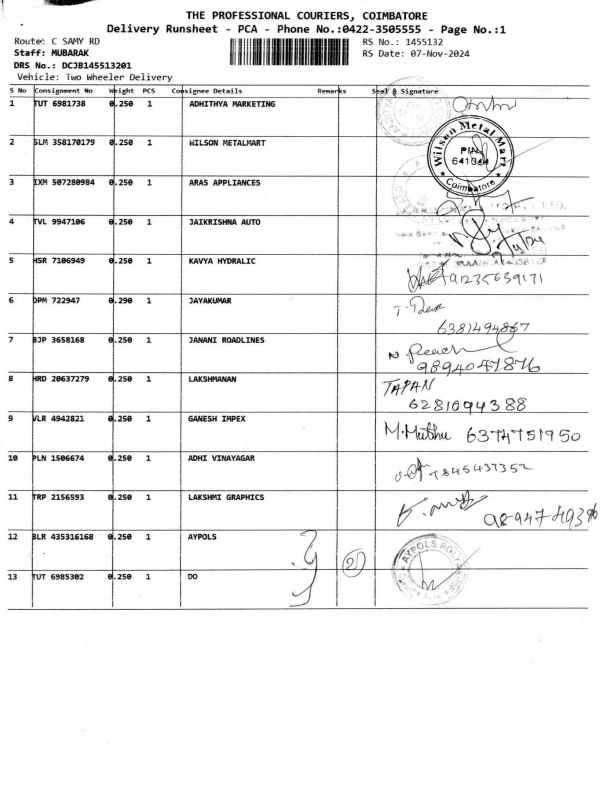 THE PROFESSIONAL COURIERS, COIMBATORE
Delivery Runsheet - PCA - Phone No.:0422-3505555 - Page No.:1
Route: C SAMY RD RS No.: 1455132
Staff: MUBARAK RS Date: 07-Nov-2024
DRS No.: DCJB145513201
Vehicle: Two Wheeler Delivery
S No Consignment No Weight PCS Consignee Details Remarks Seal & Signature
1 TUT 6981738 0.250 1 ADHITHYA MARKETING
2 SLM 358170179 0.250 1 WILSON METALMART Wilson Metal Mart PIN 641044 Coimbatore
3 IXM 507280984 0.250 1 ARAS APPLIANCES
4 TVL 9947106 0.250 1 JAIKRISHNA AUTO
5 HSR 7106949 0.250 1 KAVYA HYDRALIC 91235639171
6 DPM 722947 0.290 1 JAYAKUMAR
6381494867
7 BJP 3658168 0.250 1 JANANI ROADLINES
9894047876
8 HRD 20637279 0.250 1 LAKSHMANAN TAPAN
6281094388
9 VLR 4942821 0.250 1 GANESH IMPEX M.Muthu 6374751950
10 PLN 1506674 0.250 1 ADHI VINAYAGAR 7845437352
11 TRP 2156593 0.250 1 LAKSHMI GRAPHICS
12 BLR 435316168 0.250 1 AYPOLS 2 AYPOLS
13 TUT 6985302 0.250 1 DO